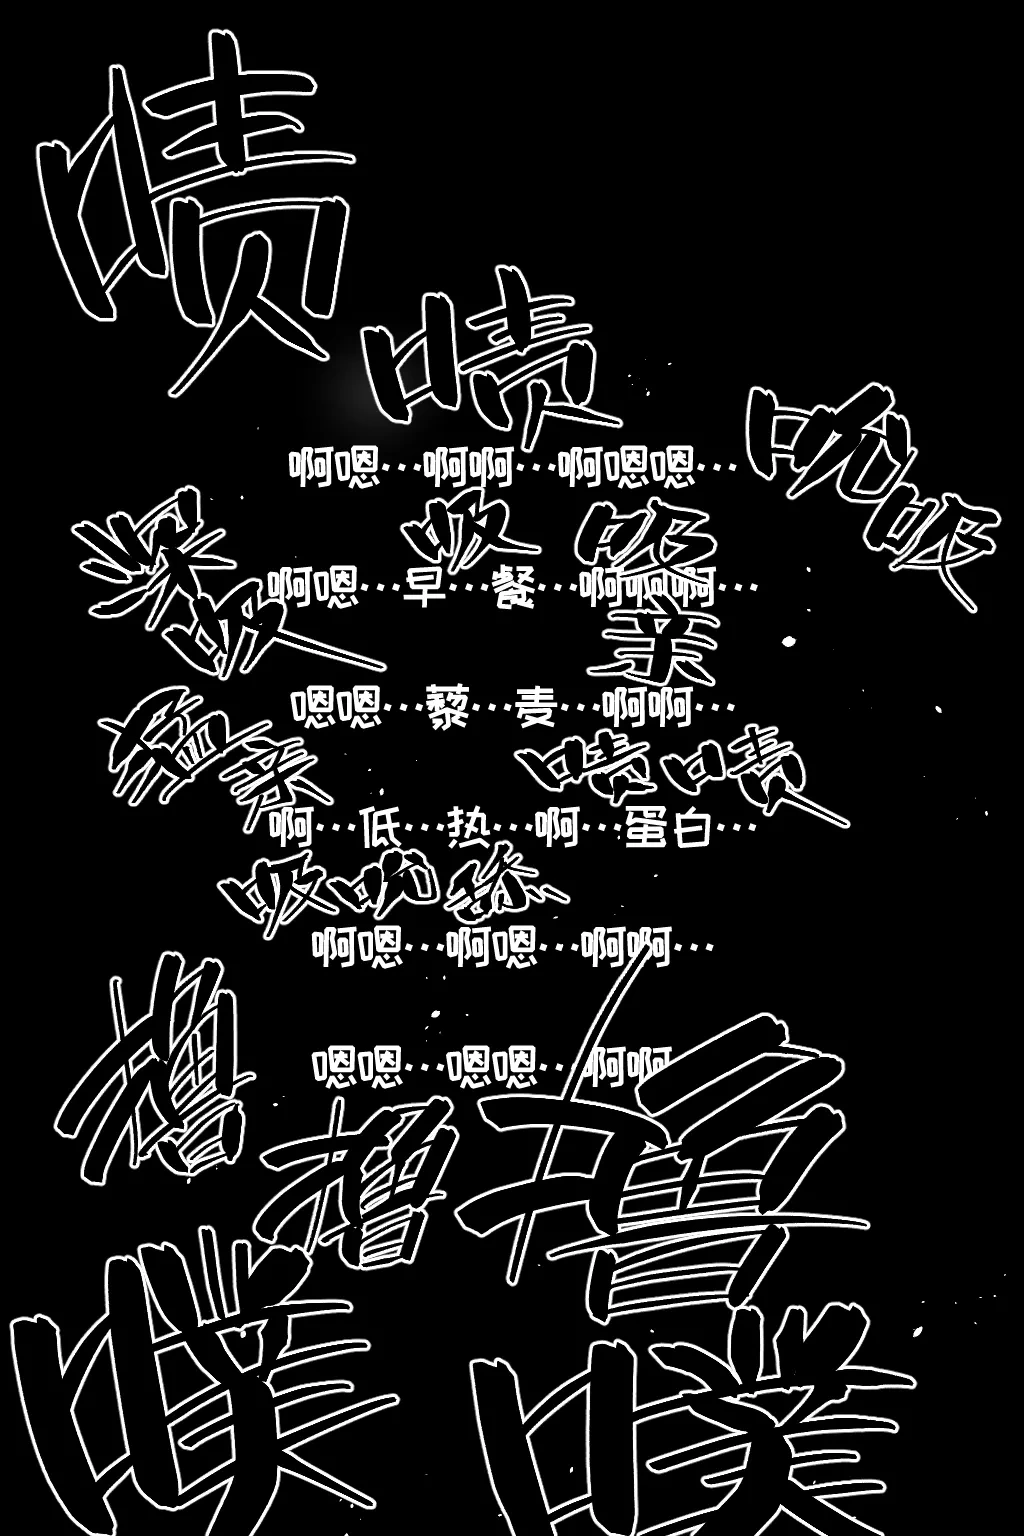 啧
啧
吮吸
啊嗯…啊啊…啊嗯嗯…
吸 吸
深吸
啊嗯…早…餐…啊啊啊…
亲
嗯嗯…藜…麦…啊啊…
猛亲
啧啧
啊…低…热…啊…蛋白…
吸吮舔
啊嗯…啊嗯…啊啊…
嗯嗯…嗯嗯…啊啊
撸
撸
撸
噗
噗